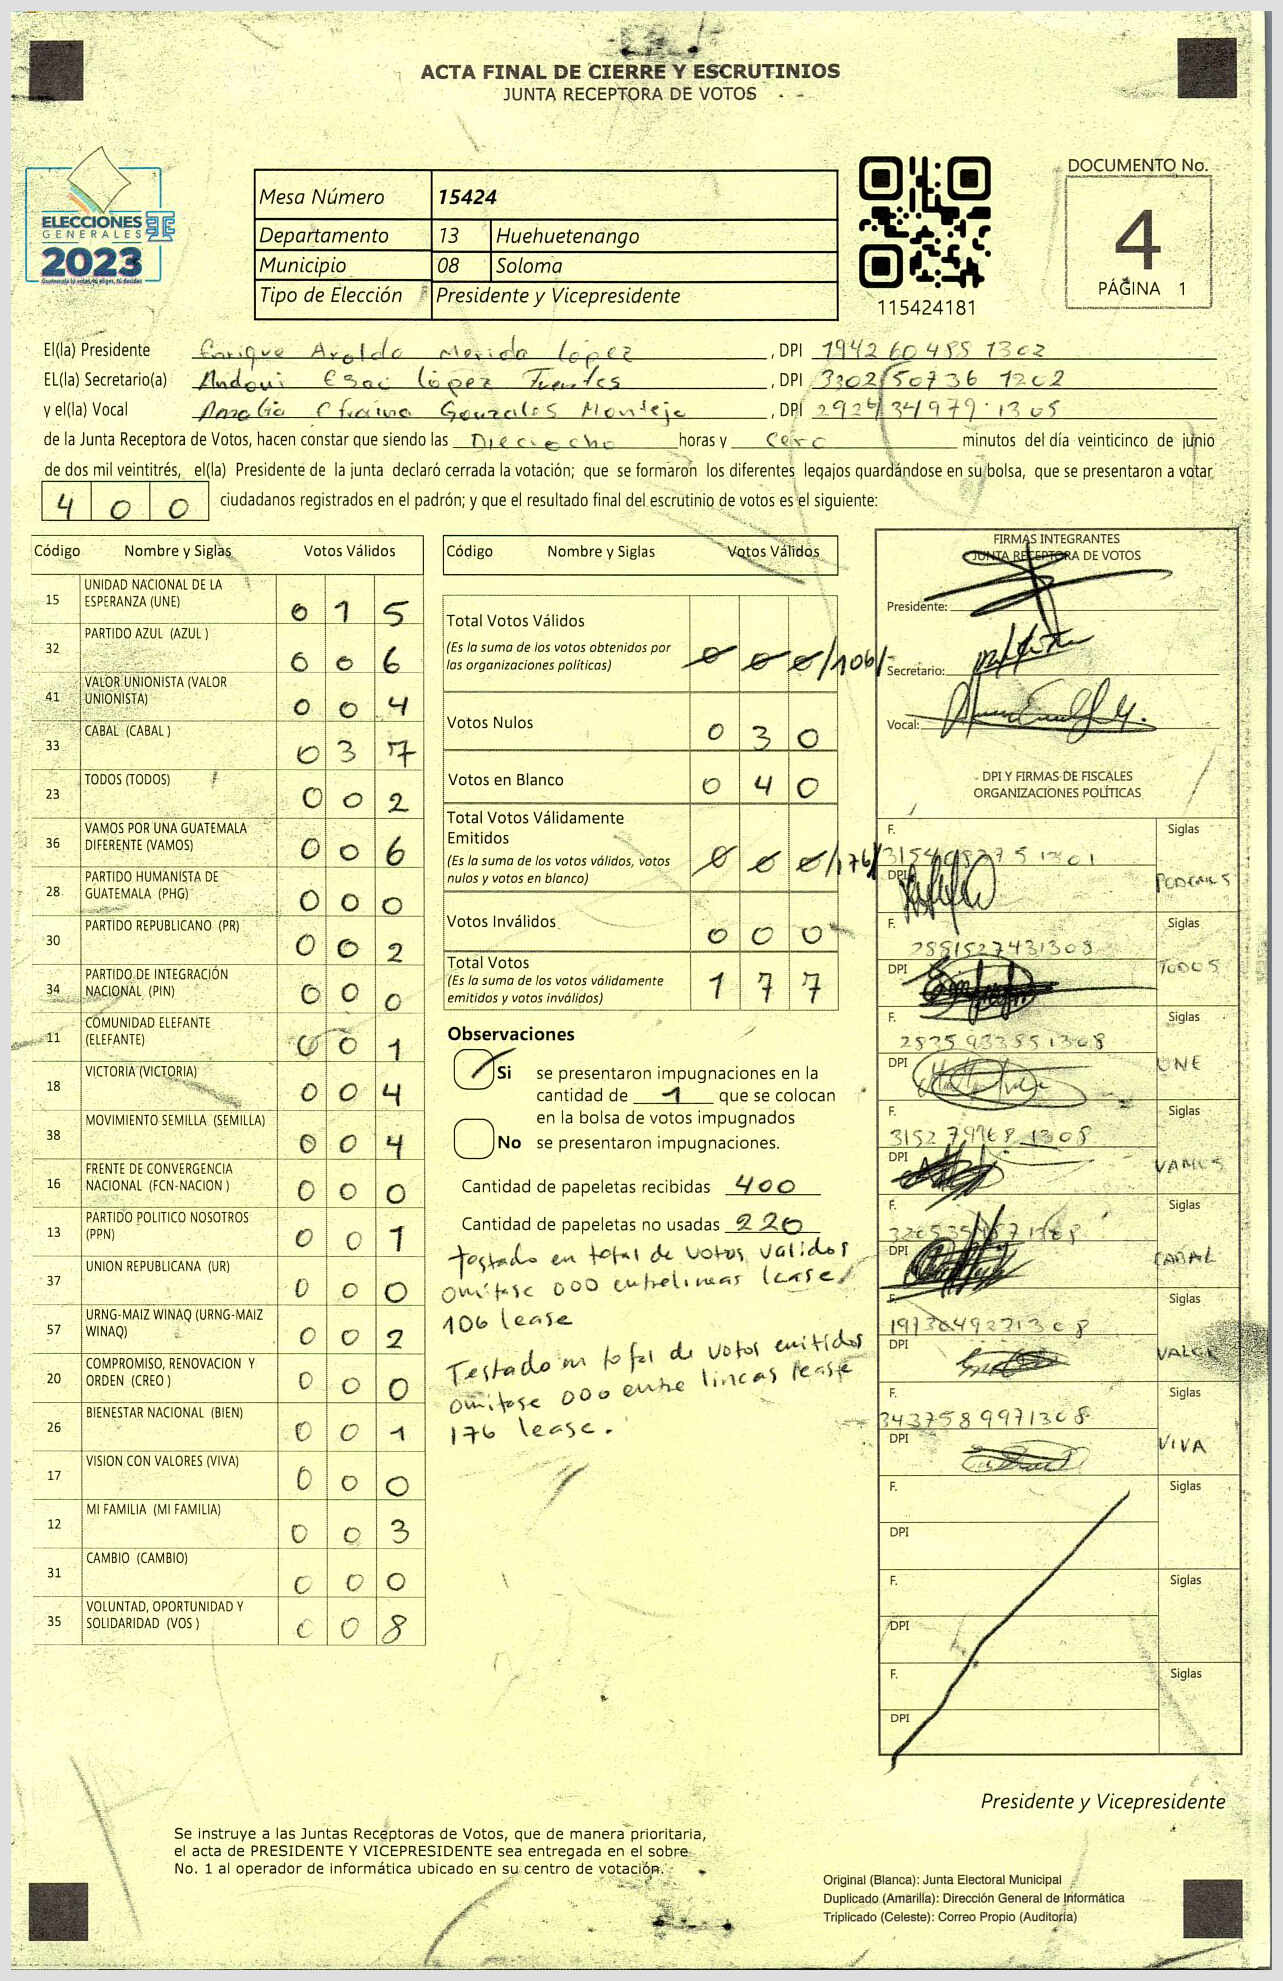 ACTA FINAL DE CIERRE Y ESCRUTINIOS
JUNTA RECEPTORA DE VOTOS
ELECCIONES
GENERALES
2023
Mesa Número 15424
Departamento 13 Huehuetenango
Municipio 08 Soloma
Tipo de Elección Presidente y Vicepresidente
115424181
DOCUMENTO No.
4
PÁGINA 1
El(la) Presidente Enrique Aroldo Merida lopez , DPI 1942 60485 1302
EL(la) Secretario(a) Andoni Esaú lópez Fuentes , DPI 3302 50736 1202
y el(la) Vocal Gonzales Montejo , DPI 34979 1305
de la Junta Receptora de Votos, hacen constar que siendo las Dieciocho horas y Cero minutos del día veinticinco de junio
de dos mil veintitrés, el(la) Presidente de la junta declaró cerrada la votación; que se formaron los diferentes legajos guardándose en su bolsa, que se presentaron a votar
400 ciudadanos registrados en el padrón; y que el resultado final del escrutinio de votos es el siguiente:
Código Nombre y Siglas Votos Válidos
15 UNIDAD NACIONAL DE LA ESPERANZA (UNE) 0 1 5
32 PARTIDO AZUL (AZUL ) 0 0 6
41 VALOR UNIONISTA (VALOR UNIONISTA) 0 0 4
33 CABAL (CABAL ) 0 3 7
23 TODOS (TODOS) 0 0 2
36 VAMOS POR UNA GUATEMALA DIFERENTE (VAMOS) 0 0 6
28 PARTIDO HUMANISTA DE GUATEMALA (PHG) 0 0 0
30 PARTIDO REPUBLICANO (PR) 0 0 2
34 PARTIDO DE INTEGRACIÓN NACIONAL (PIN) 0 0 0
11 COMUNIDAD ELEFANTE (ELEFANTE) 0 0 1
18 VICTORIA (VICTORIA) 0 0 4
38 MOVIMIENTO SEMILLA (SEMILLA) 0 0 4
16 FRENTE DE CONVERGENCIA NACIONAL (FCN-NACION ) 0 0 0
13 PARTIDO POLITICO NOSOTROS (PPN) 0 0 1
37 UNION REPUBLICANA (UR) 0 0 0
57 URNG-MAIZ WINAQ (URNG-MAIZ WINAQ) 0 0 2
20 COMPROMISO, RENOVACION Y ORDEN (CREO ) 0 0 0
26 BIENESTAR NACIONAL (BIEN) 0 0 1
17 VISION CON VALORES (VIVA) 0 0 0
12 MI FAMILIA (MI FAMILIA) 0 0 3
31 CAMBIO (CAMBIO) 0 0 0
35 VOLUNTAD, OPORTUNIDAD Y SOLIDARIDAD (VOS ) 0 0 8
Código Nombre y Siglas Votos Válidos
Total Votos Válidos
(Es la suma de los votos obtenidos por
las organizaciones políticas) 0 0 0/106/-
Votos Nulos 0 3 0
Votos en Blanco 0 4 0
Total Votos Válidamente
Emitidos
(Es la suma de los votos válidos, votos
nulos y votos en blanco) 0 0 0/176/
Votos Inválidos 0 0 0
Total Votos
(Es la suma de los votos válidamente
emitidos y votos inválidos) 1 7 7
Observaciones
Si se presentaron impugnaciones en la
cantidad de 1 que se colocan
en la bolsa de votos impugnados
No se presentaron impugnaciones.
Cantidad de papeletas recibidas 400
Cantidad de papeletas no usadas 220
Testado en total de votos validos
omitase 000 entrelineas lease
106 lease
Testado en total de votos emitidos
omitase 000 entre lineas lease
176 lease.
FIRMAS INTEGRANTES
JUNTA RECEPTORA DE VOTOS
Presidente:
Secretario:
Vocal:
DPI Y FIRMAS DE FISCALES
ORGANIZACIONES POLÍTICAS
F. Siglas
DPI PODEMOS
F. Siglas
2551527431308
DPI TODOS
F. Siglas
2535 93385 1308
DPI UNE
F. Siglas
3152 79968 1308
DPI VAMOS
F. Siglas
DPI CABAL
F. Siglas
1973049271308
DPI VALOR
F. Siglas
3437589971308
DPI VIVA
F. Siglas
DPI
F. Siglas
DPI
F. Siglas
DPI
Presidente y Vicepresidente
Se instruye a las Juntas Receptoras de Votos, que de manera prioritaria,
el acta de PRESIDENTE Y VICEPRESIDENTE sea entregada en el sobre
No. 1 al operador de informática ubicado en su centro de votación.
Original (Blanca): Junta Electoral Municipal
Duplicado (Amarilla): Dirección General de Informática
Triplicado (Celeste): Correo Propio (Auditoría)